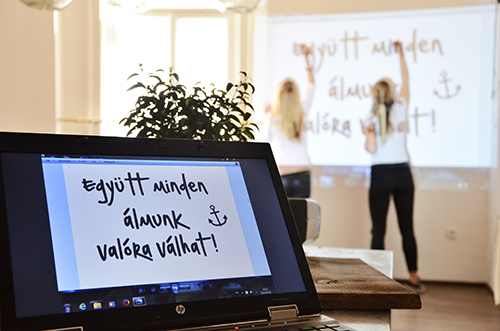 Együtt minden
álmunk
valóra válhat!
Együtt minden
álmunk
valóra válhat!
hp